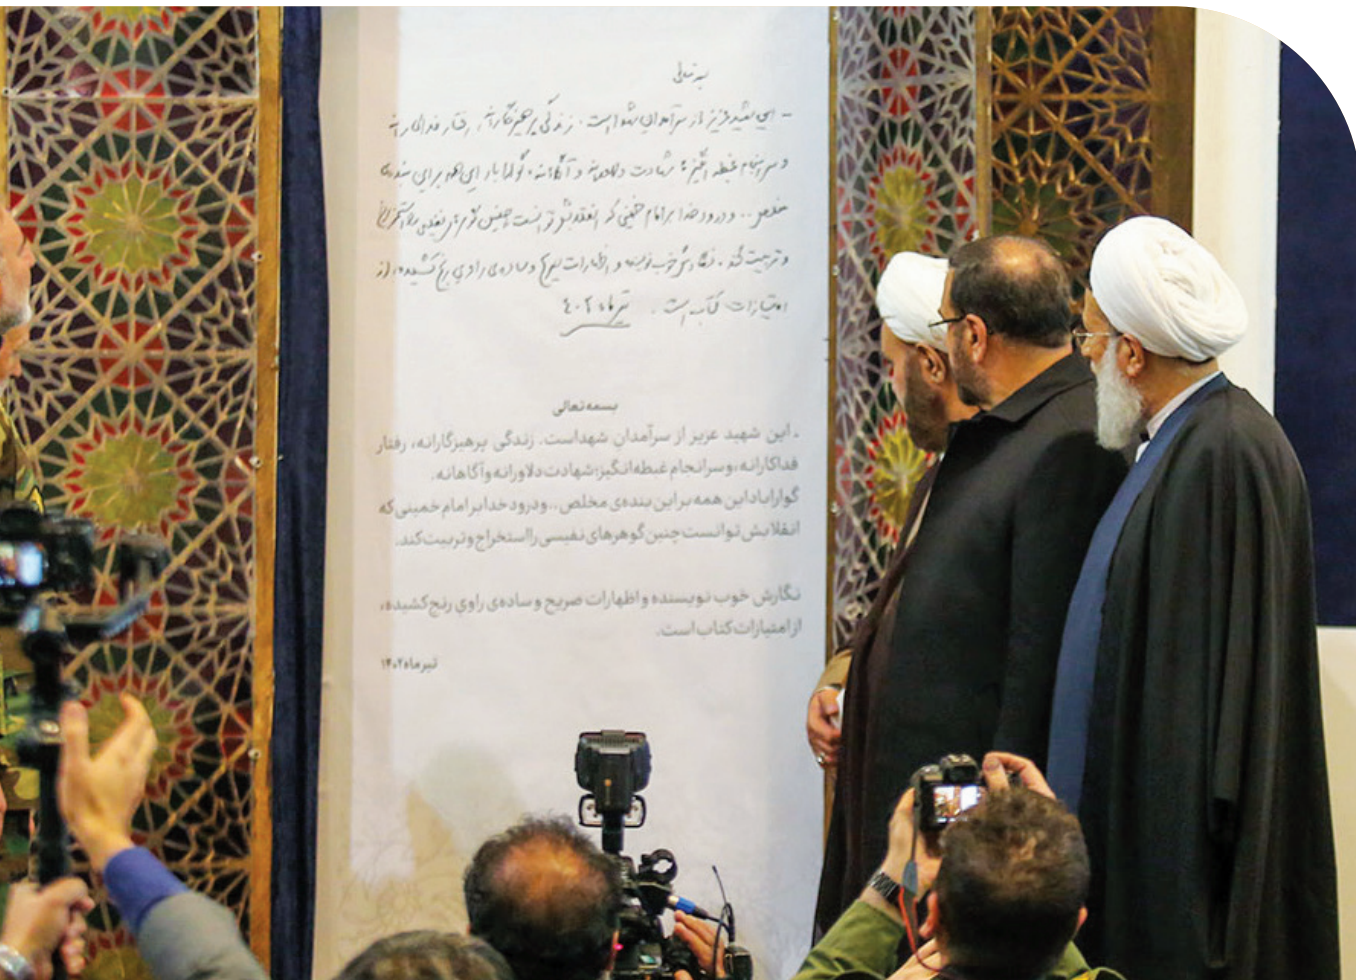 بسمه تعالی
- این شهید عزیز از سرآمدان شهدا است. زندگی پرهیزگارانه، رفتار فداکارانه
و سرانجام غبطه انگیز؛ شهادت دلاورانه و آگاهانه. گوارا باد این همه بر این بنده‌ی
مخلص .. و درود خدا بر امام خمینی که انقلابش توانست چنین گوهرهای نفیسی را استخراج
و تربیت کند. نگارش خوب نویسنده و اظهارات صریح و ساده‌ی راوی رنج کشیده، از
امتیازات کتاب است. تیرماه ۴۰۲
بسمه تعالی
. این شهید عزیز از سرآمدان شهداست. زندگی پرهیزگارانه، رفتار
فداکارانه، و سرانجام غبطه انگیز؛ شهادت دلاورانه و آگاهانه.
گوارا باد این همه بر این بنده‌ی مخلص.. و درود خدا بر امام خمینی که
انقلابش توانست چنین گوهرهای نفیسی را استخراج و تربیت کند.
نگارش خوب نویسنده و اظهارات صریح و ساده‌ی راویِ رنج کشیده،
از امتیازات کتاب است.
تیرماه ۱۴۰۲